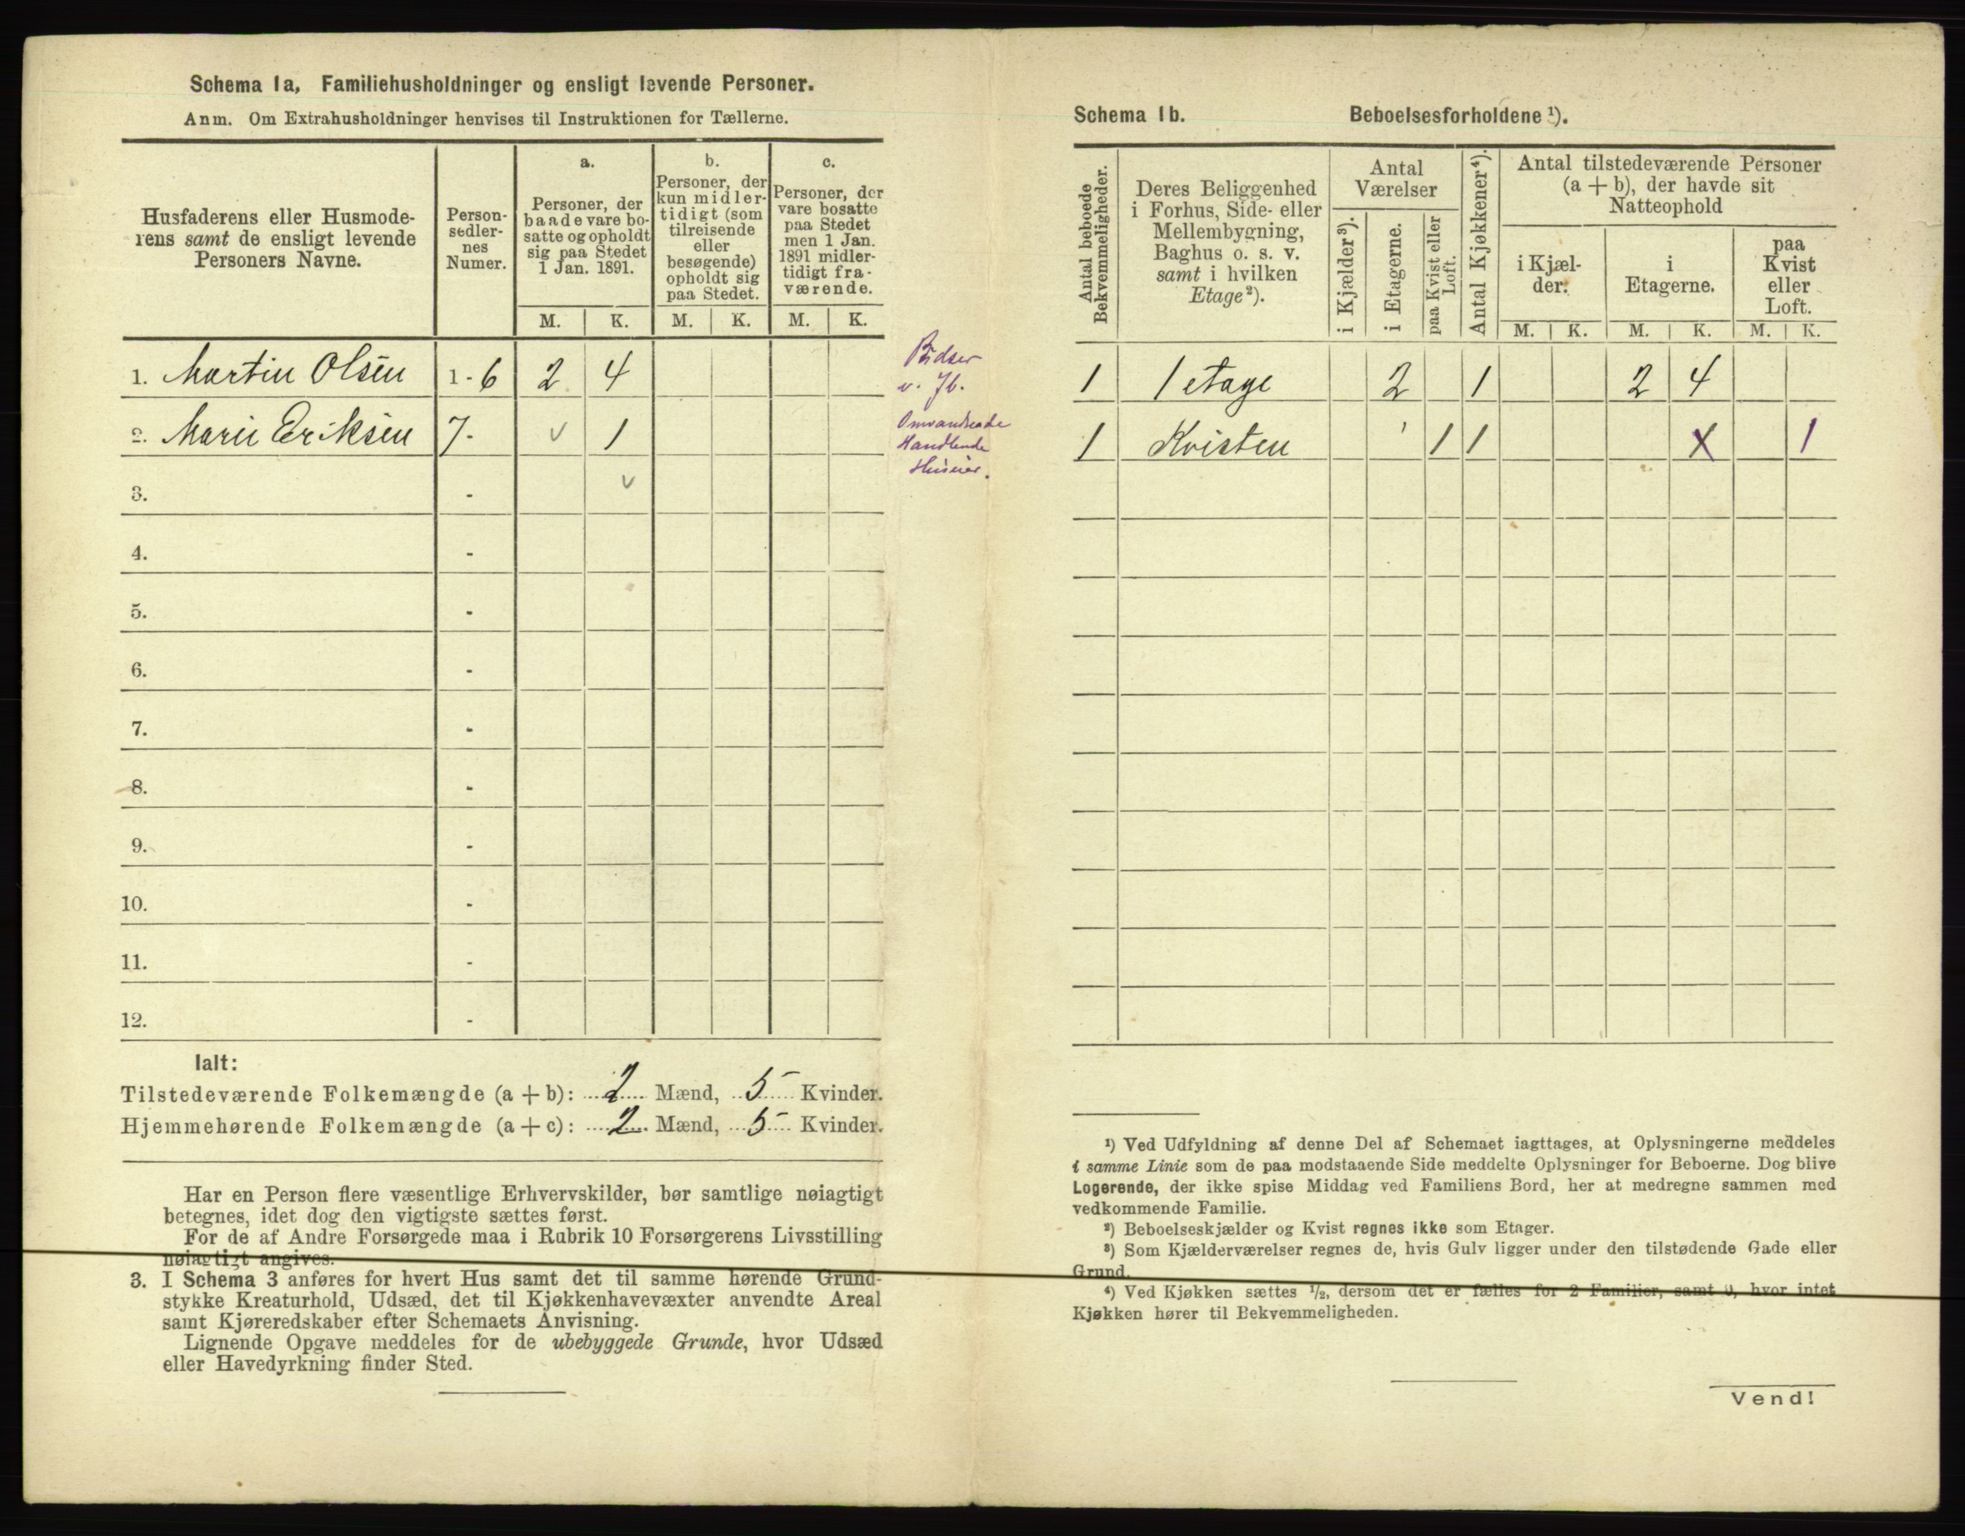 Schema 1a, Familiehusholdninger og ensligt levende Personer.
Anm. Om Extrahusholdninger henvises til Instruktionen for Tællerne.
Husfaderens eller Husmode-
rens samt de ensligt levende
Personers Navne.
Person-
sedler-
nes
Numer.
a.
Personer, der
baade vare bo-
satte og opholdt
sig paa Stedet
1 Jan. 1891.
b.
Personer, der
kun midler-
tidigt (som
tilreisende
eller
besøgende)
opholdt sig
paa Stedet.
c.
Personer, der
vare bosatte
paa Stedet
men 1 Jan.
1891 midler-
tidigt fra-
værende.
M. K. M. K. M. K.
1. Martin Olsen 1-6 2 4
2. Marie Eriksen 7- v 1
3. - v
4. -
5. -
6. -
7. -
8. -
9. -
10. -
11. -
12. -
v. Jb.
Handlende
Ialt:
Tilstedeværende Folkemængde (a + b): 2 Mænd, 5 Kvinder.
Hjemmehørende Folkemængde (a + c): 2 Mænd, 5 Kvinder.
Har en Person flere væsentlige Erhvervskilder, bør samtlige nøiagtigt
betegnes, idet dog den vigtigste sættes først.
For de af Andre Forsørgede maa i Rubrik 10 Forsørgerens Livsstilling
nøiagtigt angives.
3. I Schema 3 anføres for hvert Hus samt det til samme hørende Grund-
stykke Kreaturhold, Udsæd, det til Kjøkkenhavevæxter anvendte Areal
samt Kjøreredskaber efter Schemaets Anvisning.
Lignende Opgave meddeles for de ubebyggede Grunde, hvor Udsæd
eller Havedyrkning finder Sted.
Schema 1b. Beboelsesforholdene ¹).
Antal beboede
Bekvemmeligheder.
Deres Beliggenhed
i Forhus, Side- eller
Mellembygning,
Baghus o. s. v.
samt i hvilken
Etage ²).
Antal
Værelser
i Kjælder ³).
i Etagerne.
paa Kvist eller
Loft.
Antal Kjøkkener ⁴).
Antal tilstedeværende Personer
(a + b), der havde sit
Natteophold
i Kjæl-
der.
i
Etagerne.
paa
Kvist
eller
Loft.
M. K. M. K. M. K.
1 1 etage 2 1 2 4
1 Kvisten 1 1 X 1
¹) Ved Udfyldning af denne Del af Schemaet iagttages, at Oplysningerne meddeles
i samme Linie som de paa modstaaende Side meddelte Oplysninger for Beboerne. Dog blive
Logerende, der ikke spise Middag ved Familiens Bord, her at medregne sammen med
vedkommende Familie.
²) Beboelseskjælder og Kvist regnes ikke som Etager.
³) Som Kjælderværelser regnes de, hvis Gulv ligger under den tilstødende Gade eller
Grund.
⁴) Ved Kjøkken sættes ½, dersom det er fælles for 2 Familier, samt 0, hvor intet
Kjøkken hører til Bekvemmeligheden.
Vend!